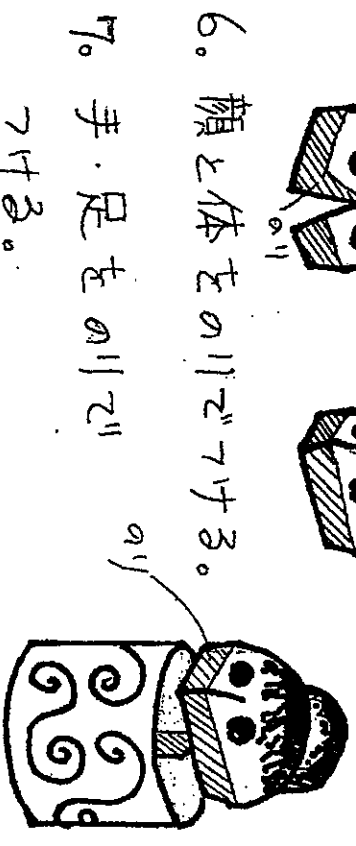 のり
6。顔と体をのりでつける。
7。手・足をのりで
つける。
のり